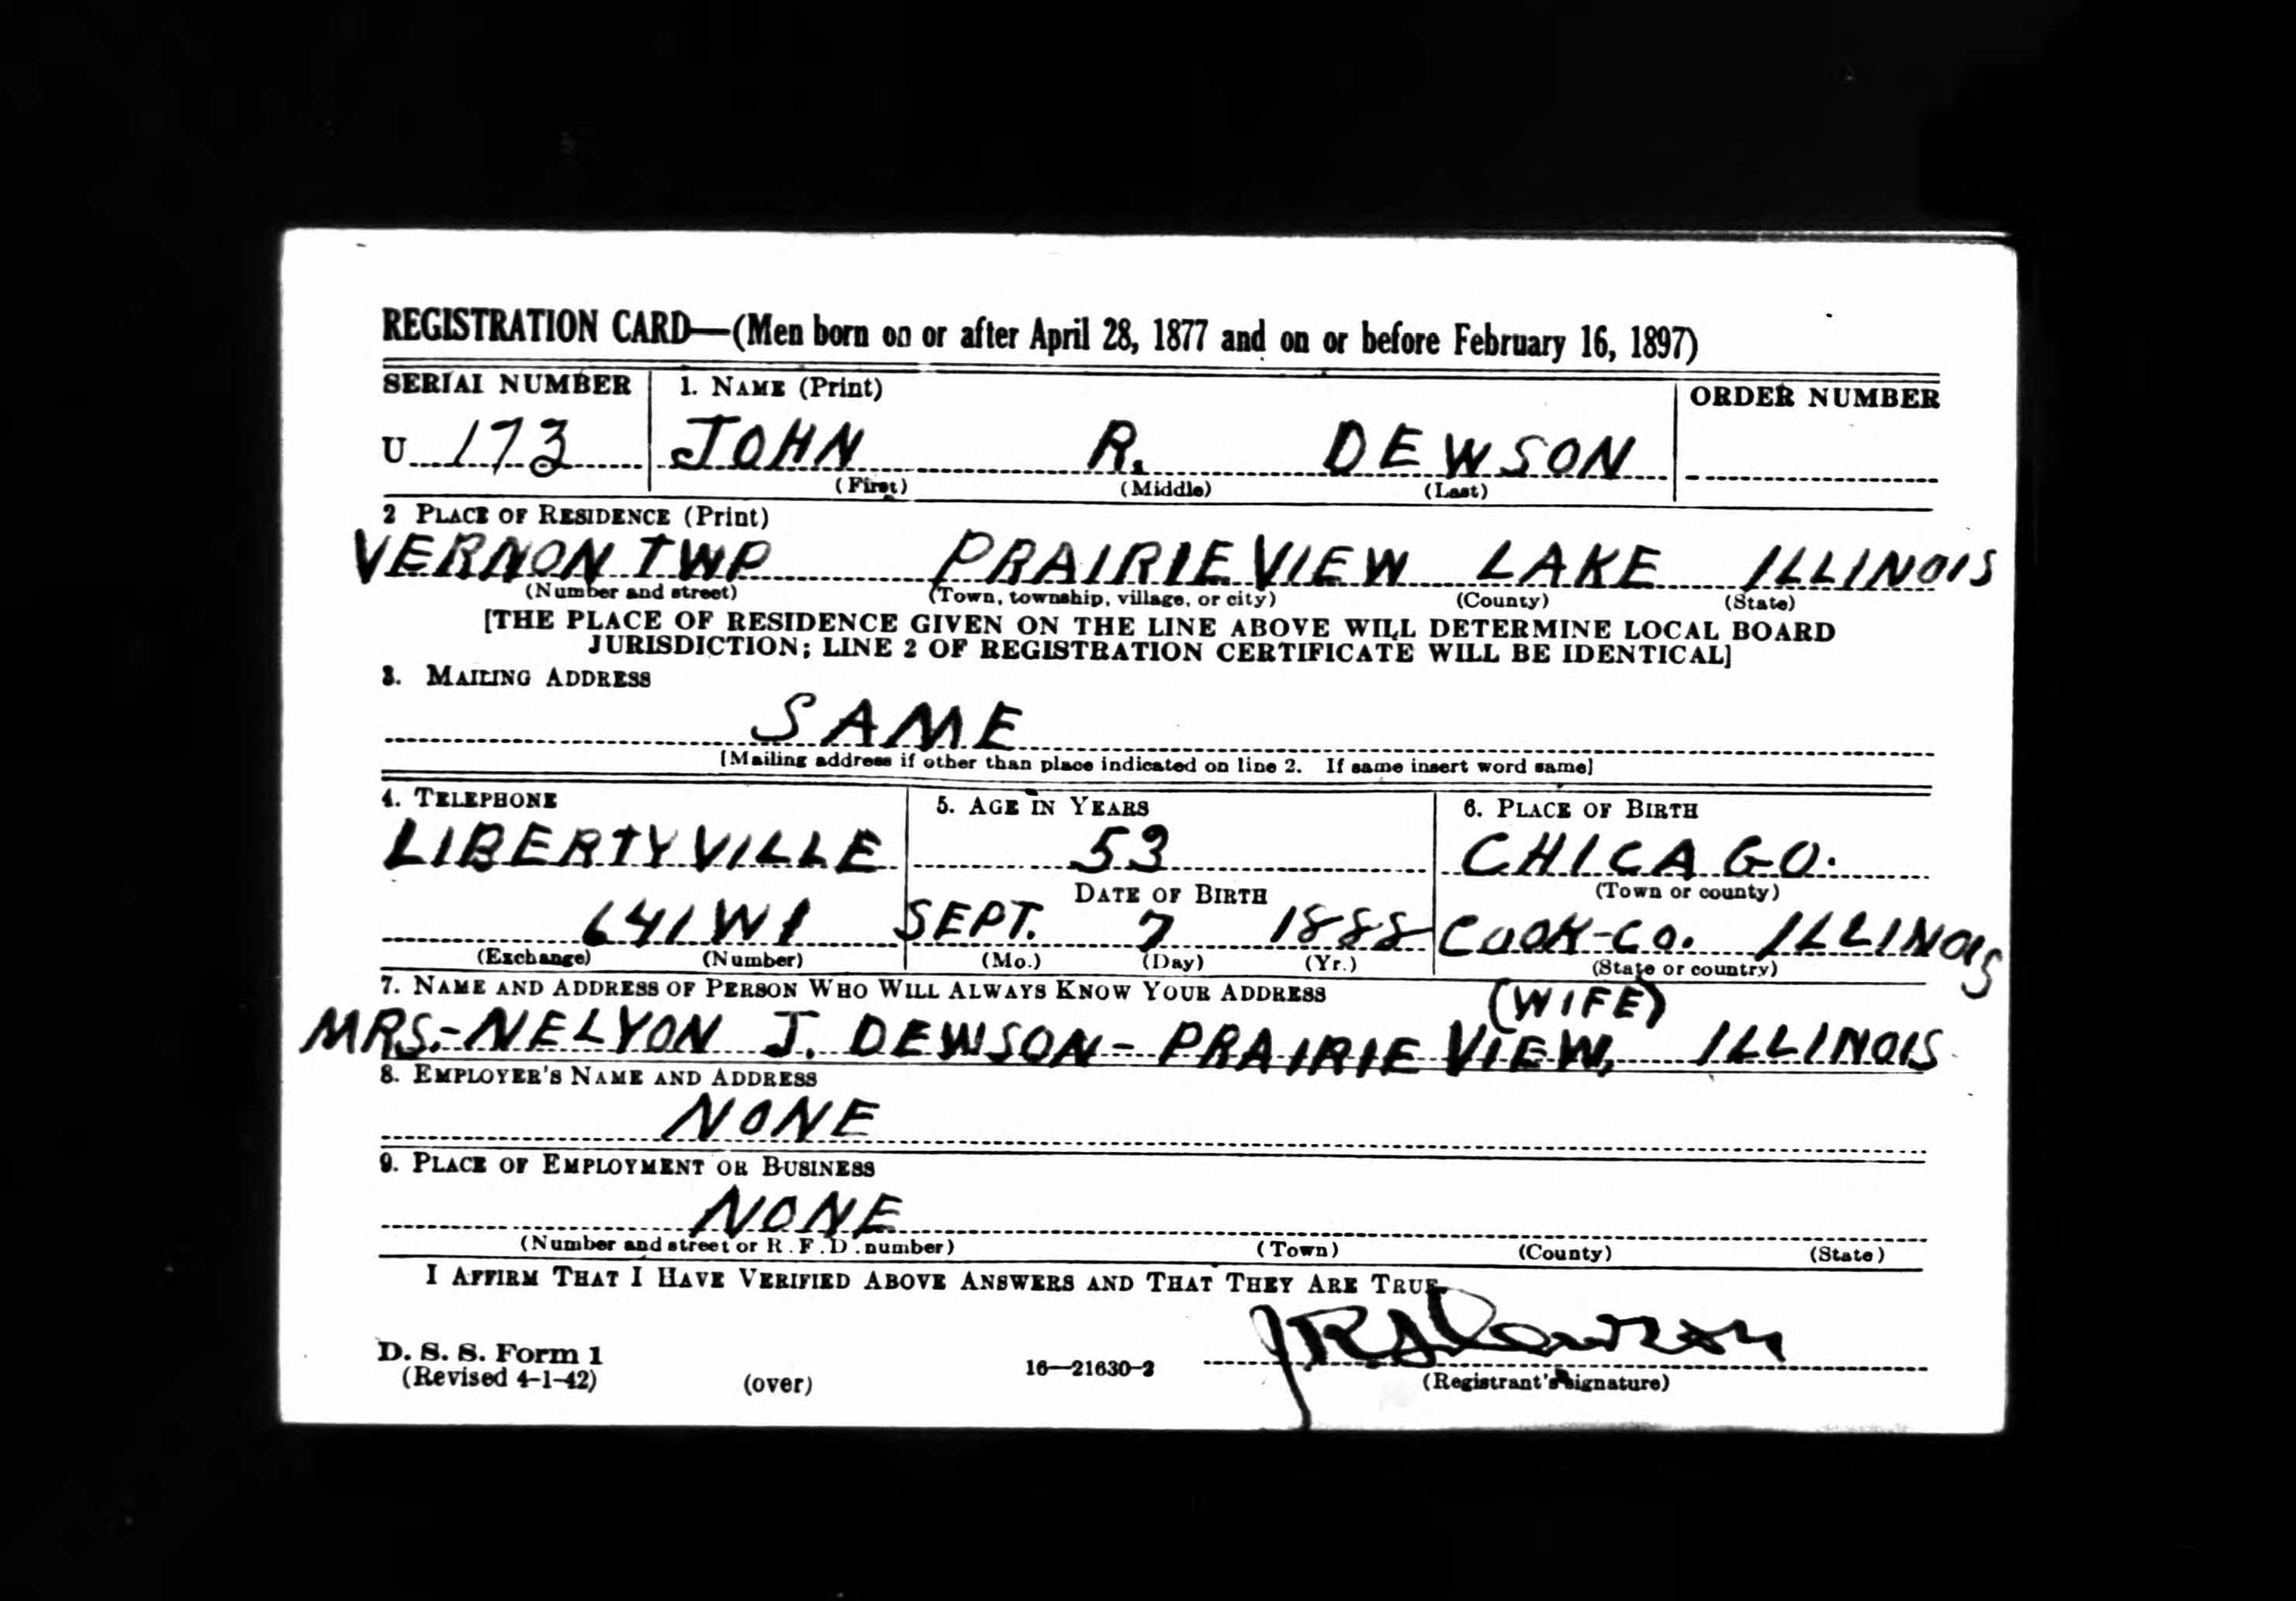 REGISTRATION CARD—(Men born on or after April 28, 1877 and on or before February 16, 1897)
SERIAL NUMBER 1. NAME (Print) ORDER NUMBER
U 173 JOHN R. DEWSON
(First) (Middle) (Last)
2 PLACE OF RESIDENCE (Print)
VERNON TWP PRAIRIE VIEW LAKE ILLINOIS
(Number and street) (Town, township, village, or city) (County) (State)
[THE PLACE OF RESIDENCE GIVEN ON THE LINE ABOVE WILL DETERMINE LOCAL BOARD
JURISDICTION; LINE 2 OF REGISTRATION CERTIFICATE WILL BE IDENTICAL]
3. MAILING ADDRESS
SAME
[Mailing address if other than place indicated on line 2. If same insert word same]
4. TELEPHONE 5. AGE IN YEARS 6. PLACE OF BIRTH
LIBERTYVILLE 53 CHICAGO.
DATE OF BIRTH (Town or county)
641W1 SEPT. 7 1888 COOK-CO. ILLINOIS
(Exchange) (Number) (Mo.) (Day) (Yr.) (State or country)
7. NAME AND ADDRESS OF PERSON WHO WILL ALWAYS KNOW YOUR ADDRESS (WIFE)
MRS.-NELYON J. DEWSON-PRAIRIE VIEW, ILLINOIS
8. EMPLOYER'S NAME AND ADDRESS
NONE
9. PLACE OF EMPLOYMENT OR BUSINESS
NONE
(Number and street or R.F.D. number) (Town) (County) (State)
I AFFIRM THAT I HAVE VERIFIED ABOVE ANSWERS AND THAT THEY ARE TRUE.
J R Dewson
D. S. S. Form 1
(Revised 4-1-42) (over) 16—21630-2 (Registrant's signature)